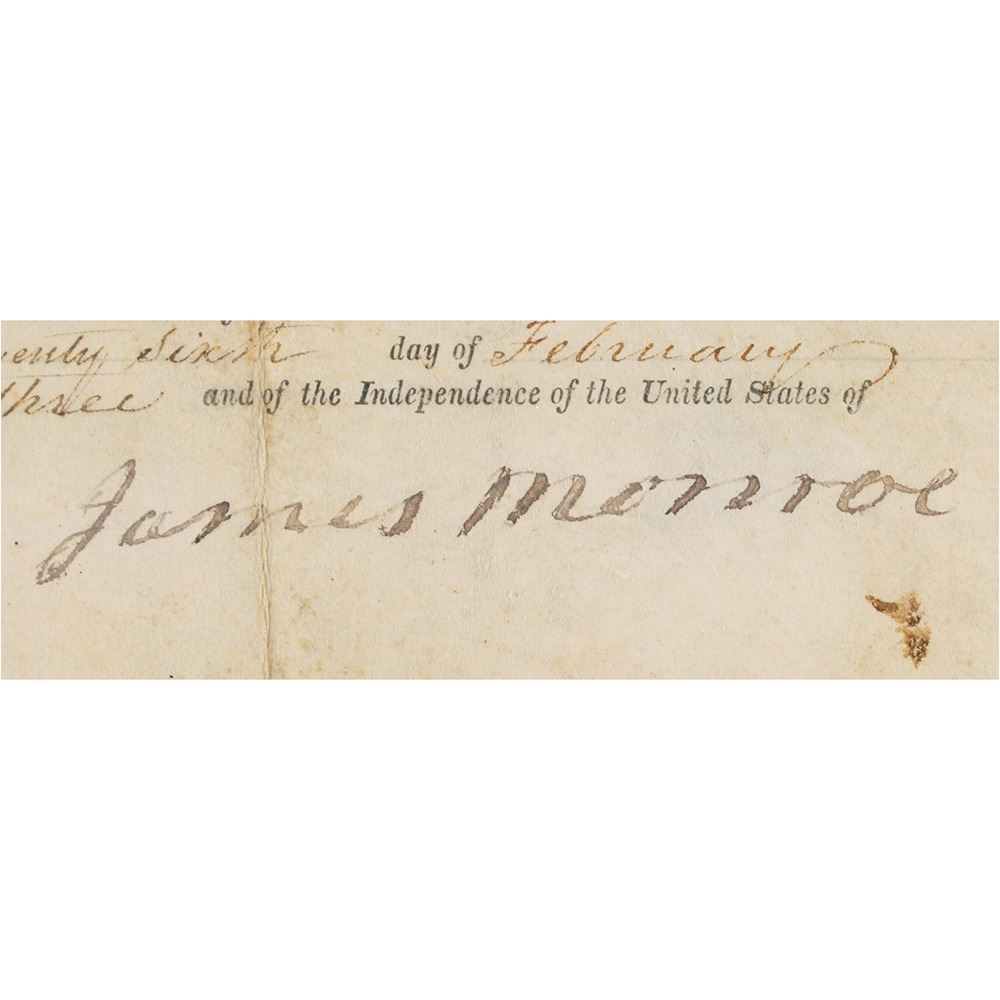 enty sixth day of February
three and of the Independence of the United States of
James Monroe